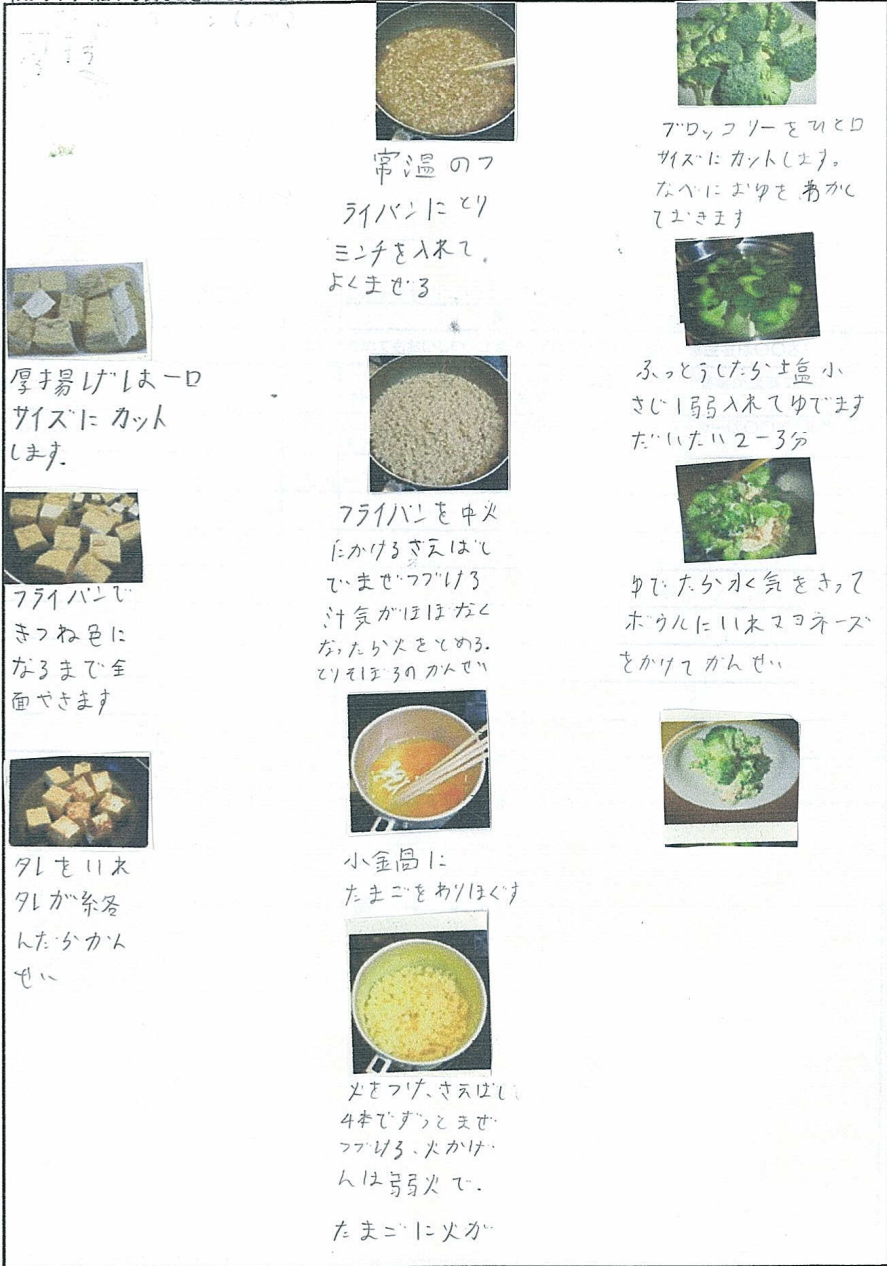 厚揚げは一口
サイズにカット
します.
フライパンで
きつね色に
なるまで全
面やきます
タレをいれ
タレが絡
んだらかん
せい
常温のフ
ライパンにとり
ミンチを入れて、
よくまぜる
フライパンを中火
にかけるさえばし
でまぜつづける
汁気がほぼなく
なったら火をとめる.
とりそぼろのかんせい
小鍋に
たまごをわりほぐす
火をつけ、さえばし
4本でずっとまぜ
つづける、火かげ
んは弱火で.
たまごに火が
ブロッコリーをひと口
サイズにカットします。
なべにおゆを沸かし
ておきます
ふっとうしたら塩小
さじ1弱入れてゆでます
だいたい2-3分
ゆでたら水気をきって
ボウルにいれマヨネーズ
をかけてかんせい